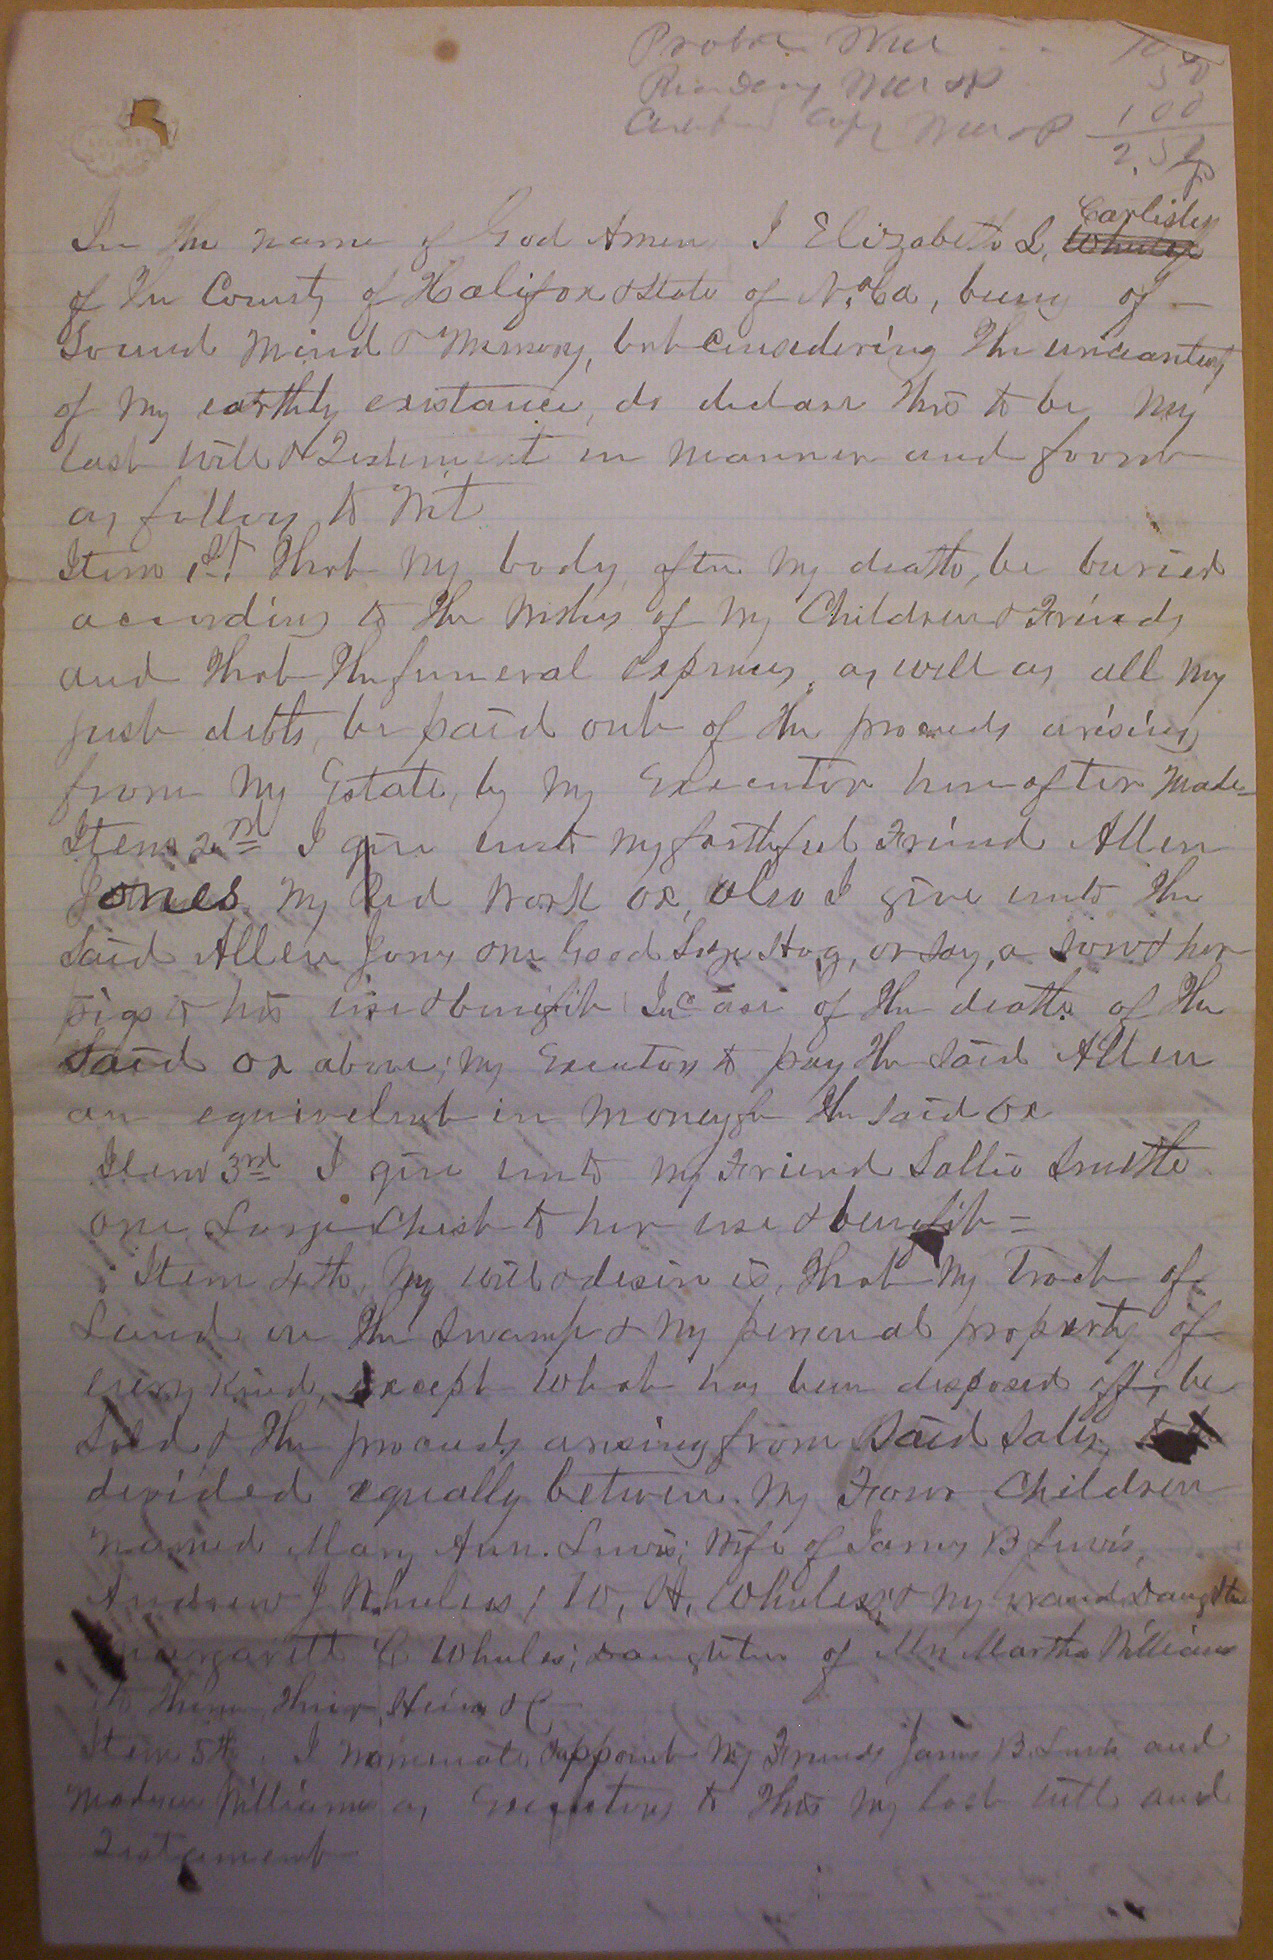 Probate Will 100
Recording Will &P 50
Copy Will &P 100
2.50
In the name of God Amen I Elizabeth L. Carlisle
of the County of Halifax & State of N. Ca, being of
Sound Mind & Memory, but considering the uncertenty
of my earthly existance, do declare this to be my
last Will & Testement in manner and form
as follows to Wit
Item 1st That my body after my death, be buried
according to the Wishes of my Children & Friends
and that the funeral expences, as well as all my
just debts, be paid out of the proceeds arising
from my Estate, by my Executor hereafter made-
Item 2nd I give unto my faithful Friend Allen
Jones my Red Work ox, also I give unto the
Said Allen Jones one Good Size Hog, or say, a sow & her
pigs to his use & benifit In case of the death of the
Said ox above; my Executors to pay the Said Allen
an equivelent in money for the Said ox
Item 3rd I give unto my Friend Sallie Smith
one Large Chest to her use & benefit =
Item 4th, My will & desire is, that my Tract of
Land on the Swamp & my personal property of
every kind, except what has been disposed off, be
Sold & the proceeds arising from Said Sales,
devided equally between my Four Children
named Mary Ann Lewis; Wife of James B Lewis,
Andrew J Wheless; W, H, Wheless; & my Grand Daughter
Margarett C Wheless; daughter of Mrs Martha Williams
to them their Heirs &C
Item 5th. I nominate & appoint my Friends James B. Lewis and
Williams as Executors to this my last will and
Testament